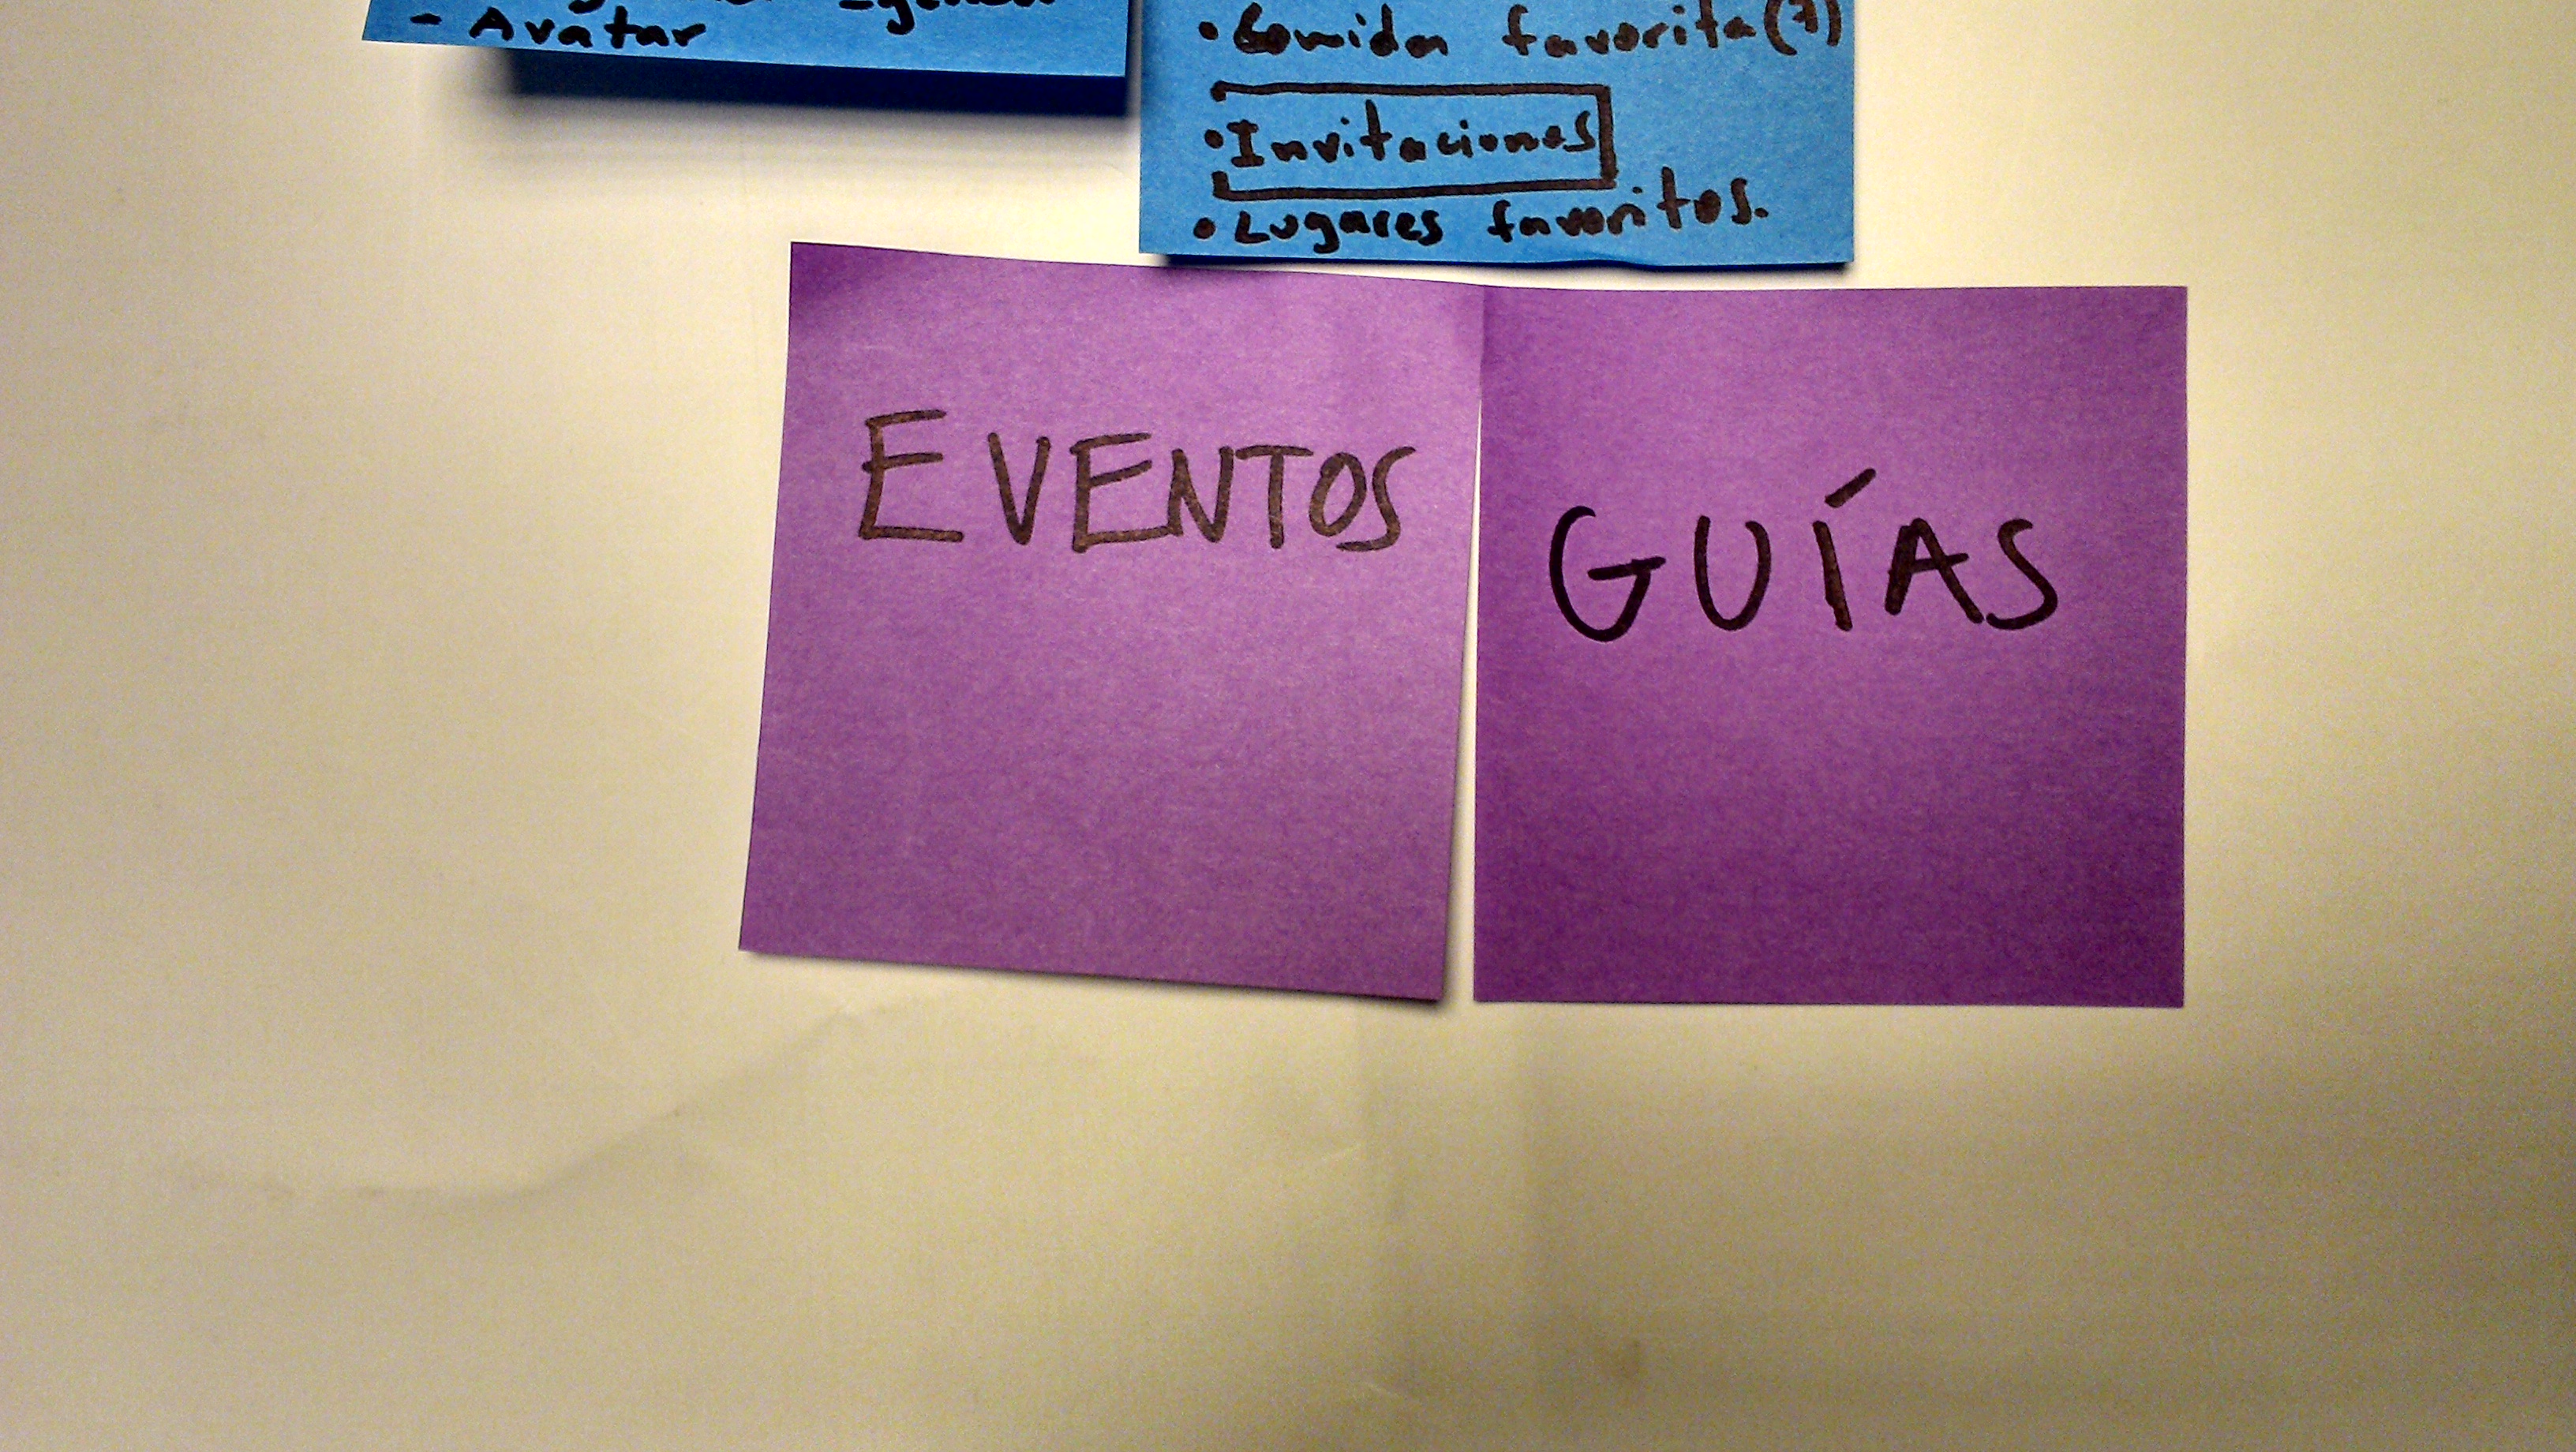 - Avatar
• Comida favorita (?)
• Invitaciones
• Lugares favoritos.
EVENTOS
GUÍAS